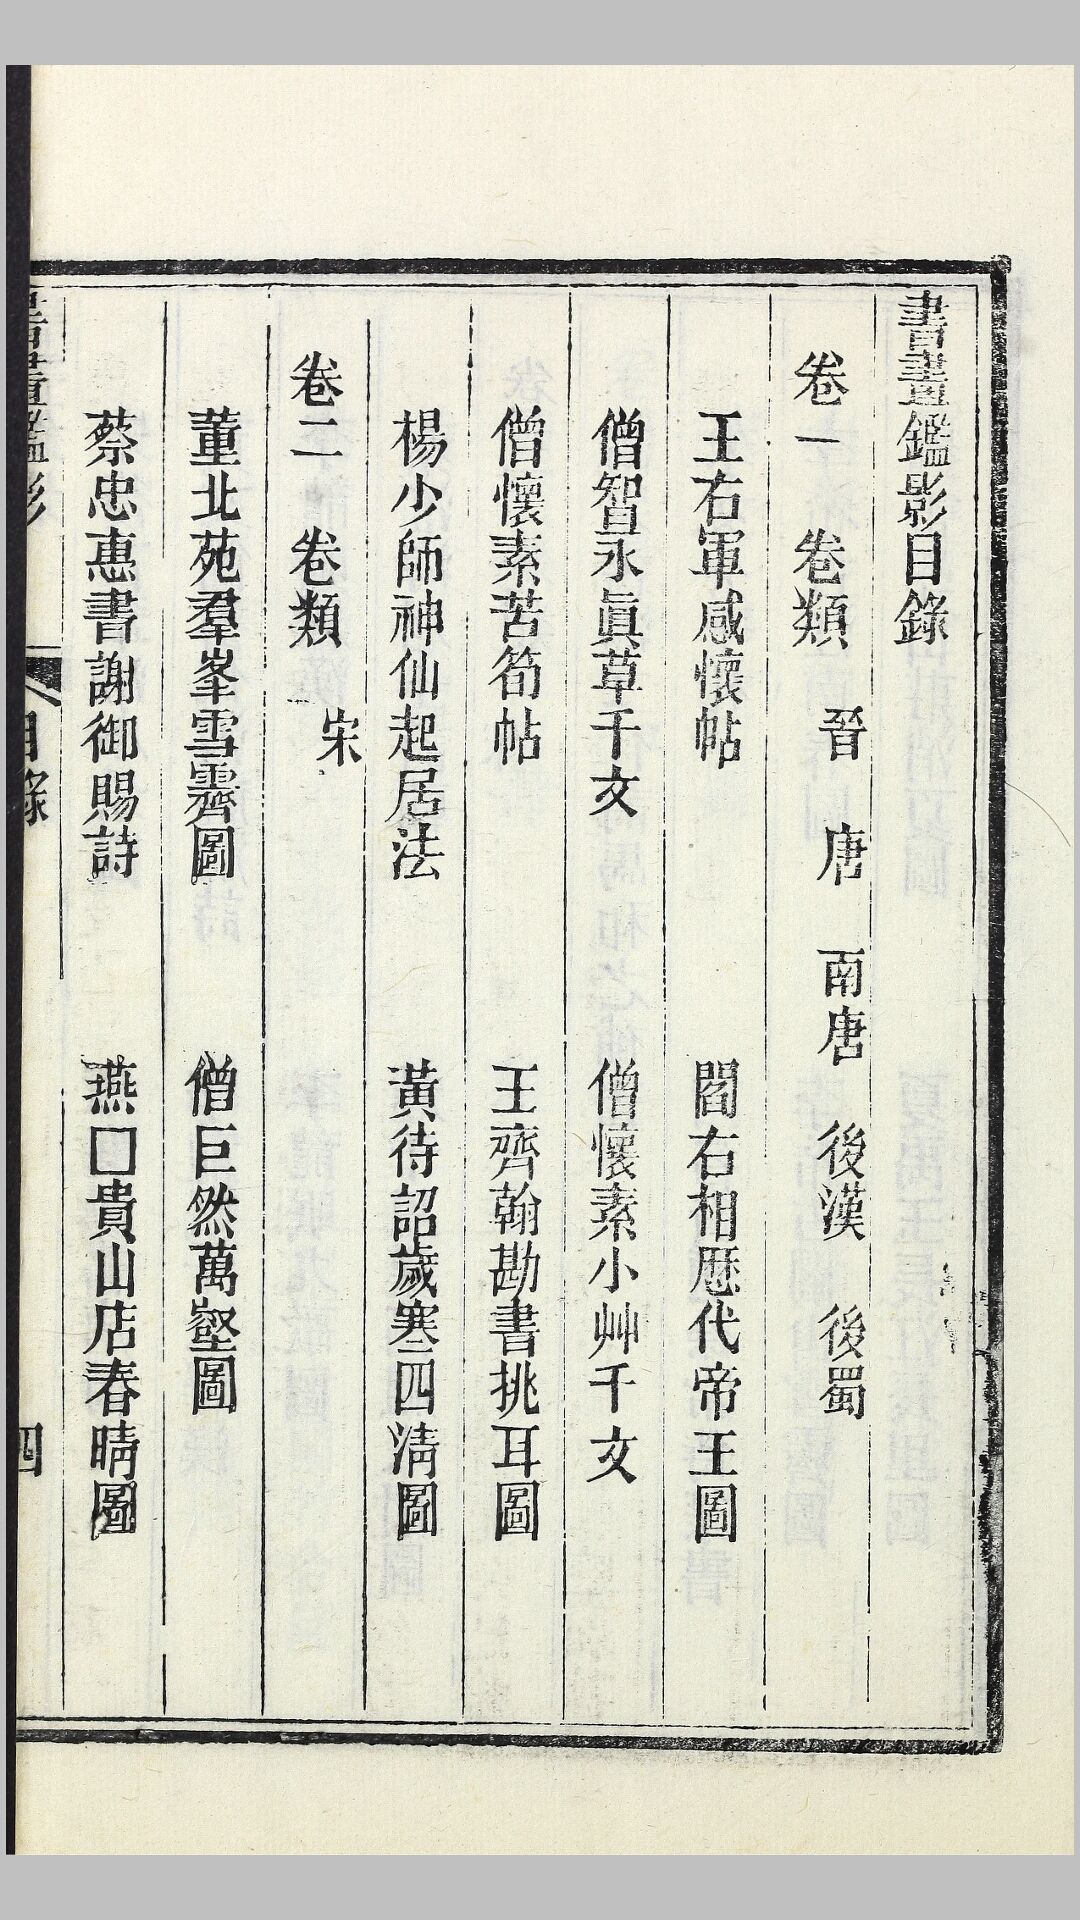 書畫鑑影目錄
卷一　卷類　晉　唐　南唐　後漢　後蜀
王右軍感懷帖　閻右相歷代帝王圖
僧智永眞草千文　僧懷素小艸千文
僧懷素苦筍帖　王齊翰勘書挑耳圖
楊少師神仙起居法　黃待詔歲寒四淸圖
卷二　卷類　宋
董北苑羣峯雪霽圖　僧巨然萬壑圖
蔡忠惠書謝御賜詩　燕□貴山店春晴圖
書畫鑑影　目錄　四